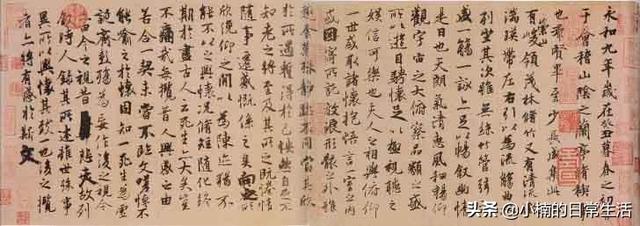 永和九年歲在癸丑暮春之初會
于會稽山陰之蘭亭脩稧事
也群賢畢至少長咸集此地
有崇山峻領茂林脩竹又有清流激
湍暎帶左右引以為流觴曲水
列坐其次雖無絲竹管弦之
盛一觴一詠亦足以暢敘幽情
是日也天朗氣清惠風和暢仰
觀宇宙之大俯察品類之盛
所以遊目騁懷足以極視聽之
娛信可樂也夫人之相與俯仰
一世或取諸懷抱悟言一室之內
或因寄所託放浪形骸之外雖
趣舍萬殊靜躁不同當其欣
於所遇暫得於己怏然自足不
知老之將至及其所之既惓情
隨事遷感慨係之矣向之所
欣俛仰之閒以為陳迹猶不
能不以之興懷況脩短隨化終
期於盡古人云死生亦大矣豈
不痛哉每攬昔人興感之由
若合一契未嘗不臨文嗟悼不
能喻之於懷固知一死生為虛
誕齊彭殤為妄作後之視今
亦由今之視昔悲夫故列
敘時人錄其所述雖世殊事
異所以興懷其致一也後之攬
者亦將有感於斯文
头条 @小楠的日常生活